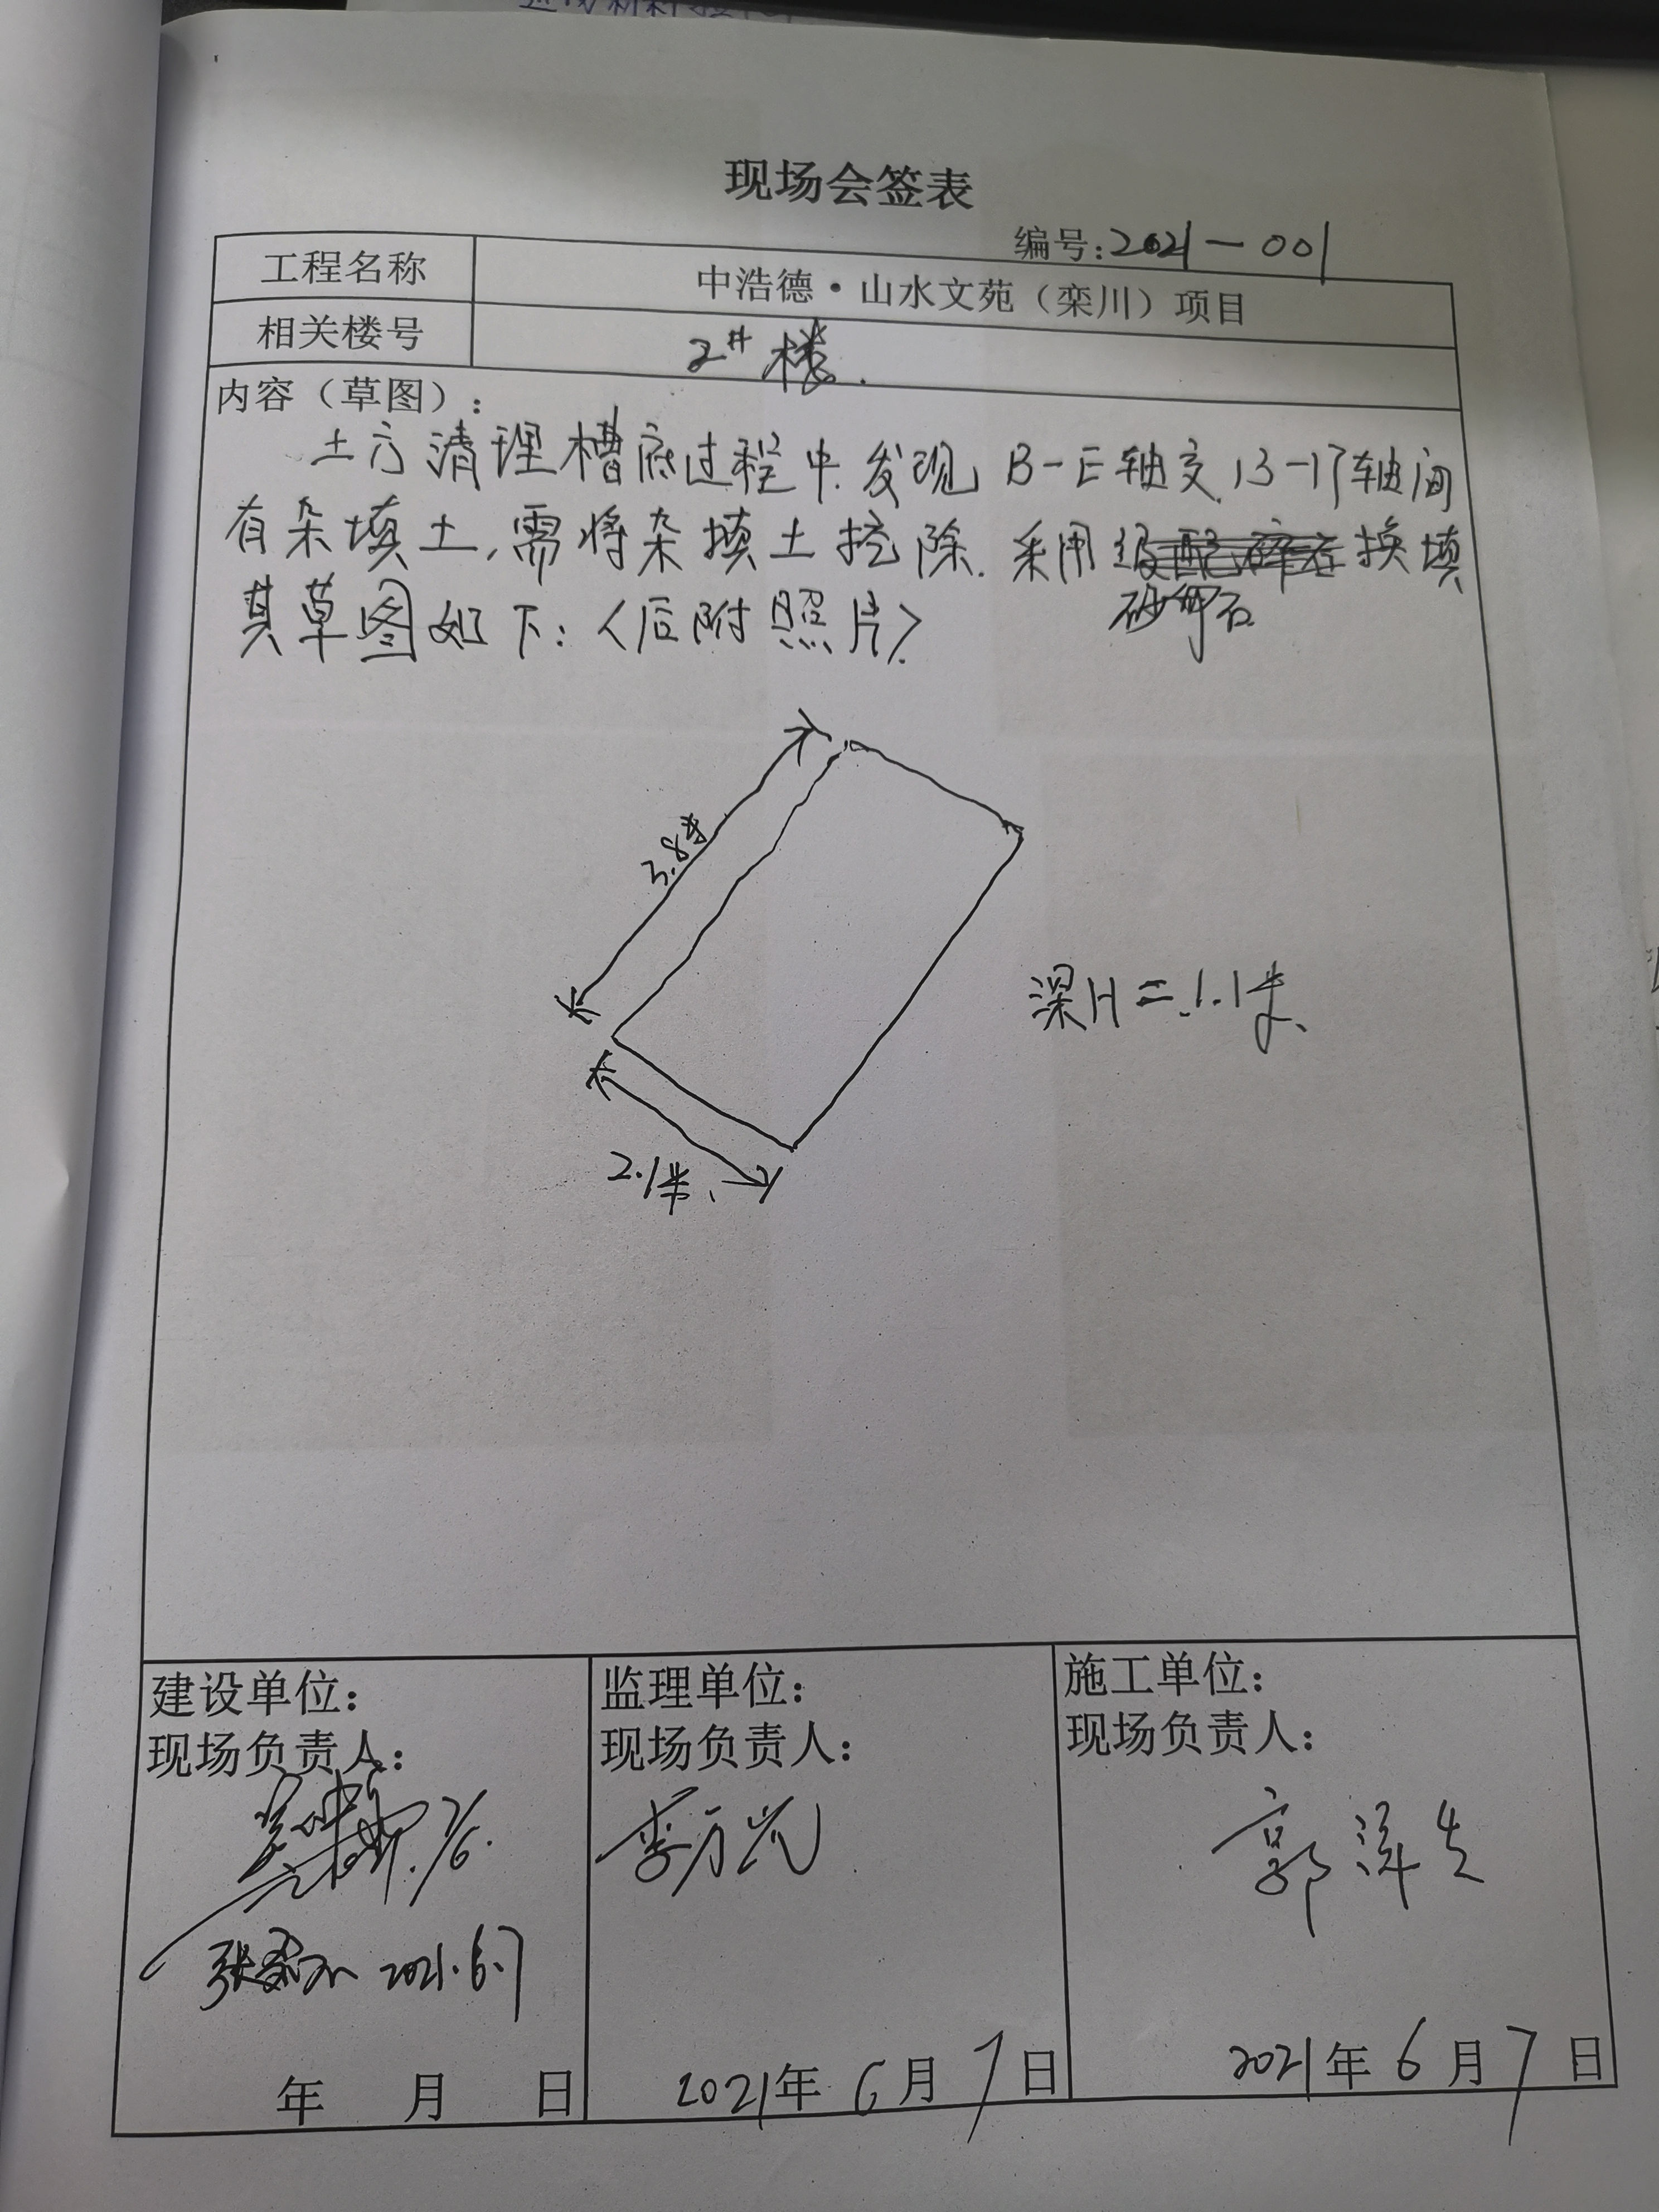 现场会签表
编号:2021-001
工程名称 中浩德·山水文苑（栾川）项目
相关楼号 2#楼.
内容（草图）:
土方清理槽底过程中.发现B-E轴交13-17轴间
有杂填土,需将杂填土挖除.采用级配碎石换填
砂卵石
其草图如下:〈后附照片〉
3.8米
深H=1.1米、
2.1米、
建设单位:
现场负责人:
7/6.
2021.6.7
年 月 日
监理单位:
现场负责人:
2021年6月7日
施工单位:
现场负责人:
2021年6月7日